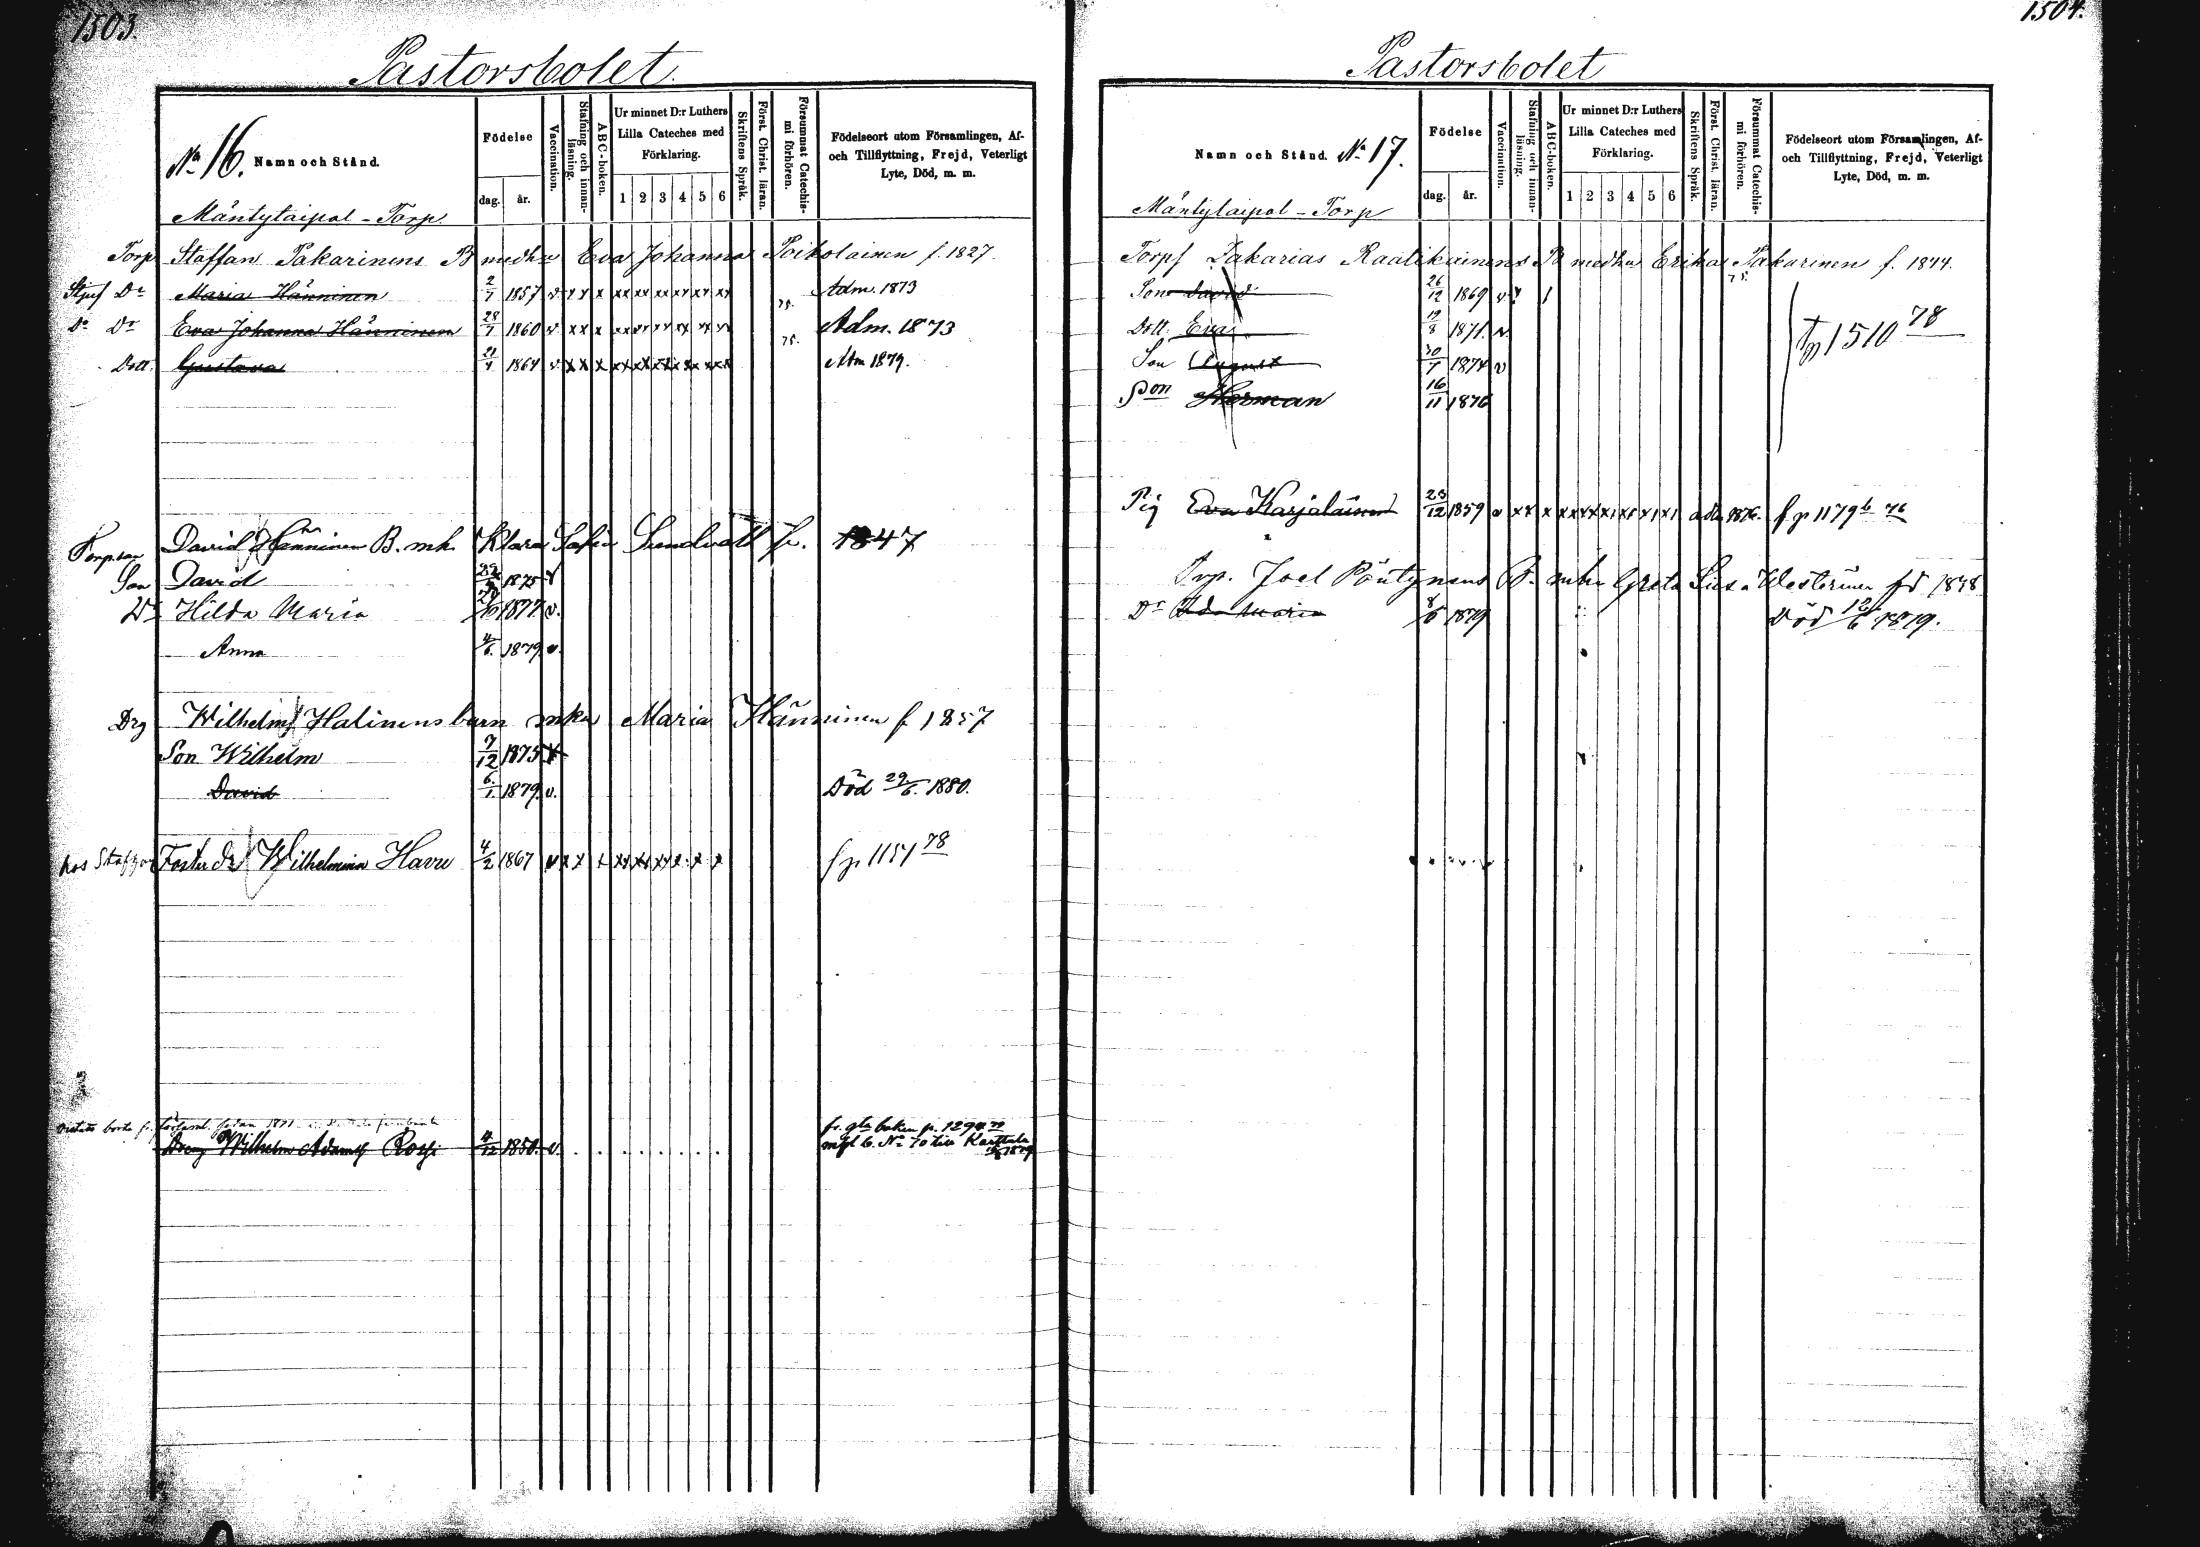 1503.
Pastorsbolet.
No 16. Namn och Stånd.
Födelse
dag. år.
Vaccination.
Stafning och innan-läsning.
ABC-boken.
Ur minnet D:r Luthers Lilla Cateches med Förklaring.
1 2 3 4 5 6
Skriftens Språk.
Först. Christ. läran.
Försummat Catechis-mi förhören.
Födelseort utom Församlingen, Af- och Tillflyttning, Frejd, Veterligt Lyte, Död, m. m.
Mäntytaipal - Torp.
Torp Staffan Pakarinens B medhu Eva Johanna Poikolainen f. 1827.
Stjuf Dr Maria Hänninen 2/7 1857 v x x x xx xx xx xx xx xx Adm. 1873
Do Dr Eva Johanna Hänninen 28/7 1860 v x x x xx xx xx xx xx xx 75. Adm. 1873
Dott. Gustava 21/4 1864 v x x x xx xx xx xx xx xx 75. Adm 1879.
Torpare David Hänninen B. mh. Klara Sofia Sundvall f. 1847
Son David 1875
Dr Hilda Maria 1877 v.
Anna 4/6. 1879. v.
Drg Wilhelm Halinens barn mhu Maria Hänninen f 1857
Son Wilhelm 7/12 1875
David 6/1. 1879. v. Död 29/6. 1880.
hos Foster dr Wilhelmina Havu 4/2 1867 v x x x xx xx xx x x x f p 1151 78
Dräng Wilhelm Adamsf Rossi 4/12 1850. v. . . . . . . . . .
fr. gla boken p. 1290
mfl b. No 70 till Karttula 1879
1504.
Pastorsbolet
Namn och Stånd. No 17.
Födelse
dag. år.
Vaccination.
Stafning och innan-läsning.
ABC-boken.
Ur minnet D:r Luthers Lilla Cateches med Förklaring.
1 2 3 4 5 6
Skriftens Språk.
Först. Christ. läran.
Försummat Catechis-mi förhören.
Födelseort utom Församlingen, Af- och Tillflyttning, Frejd, Veterligt Lyte, Död, m. m.
Mäntytaipal - Torp
Torpf Zakarias Raatikainens B medhu Erika Pakarinen f. 1844.
Son David 26/12 1869 v 75.
Dott. Eva 19/8 1871. v.
Son August 30/7 1874 v
Son Herman 16/11 1876
tp 1510 78
Pig Eva Karjalainen 23/12 1859 v x x x adm 1876. f p 1179 76
Torp. Joel Pöntynens B. mhu Greta Lisa Westerinen fd 1838
Dr Ida Maria 8/5 1879 Död 12/6 1879.